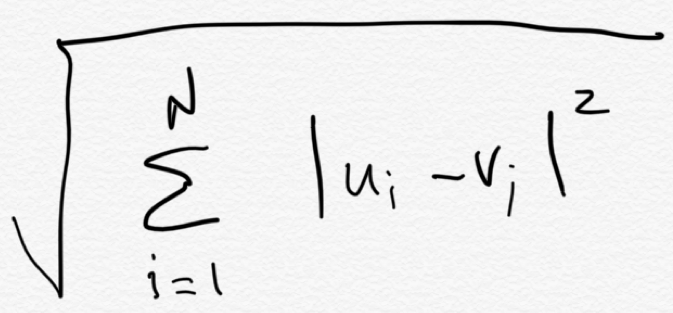 \sqrt{\sum_{i=1}^{N} |u_i - v_j|^2}